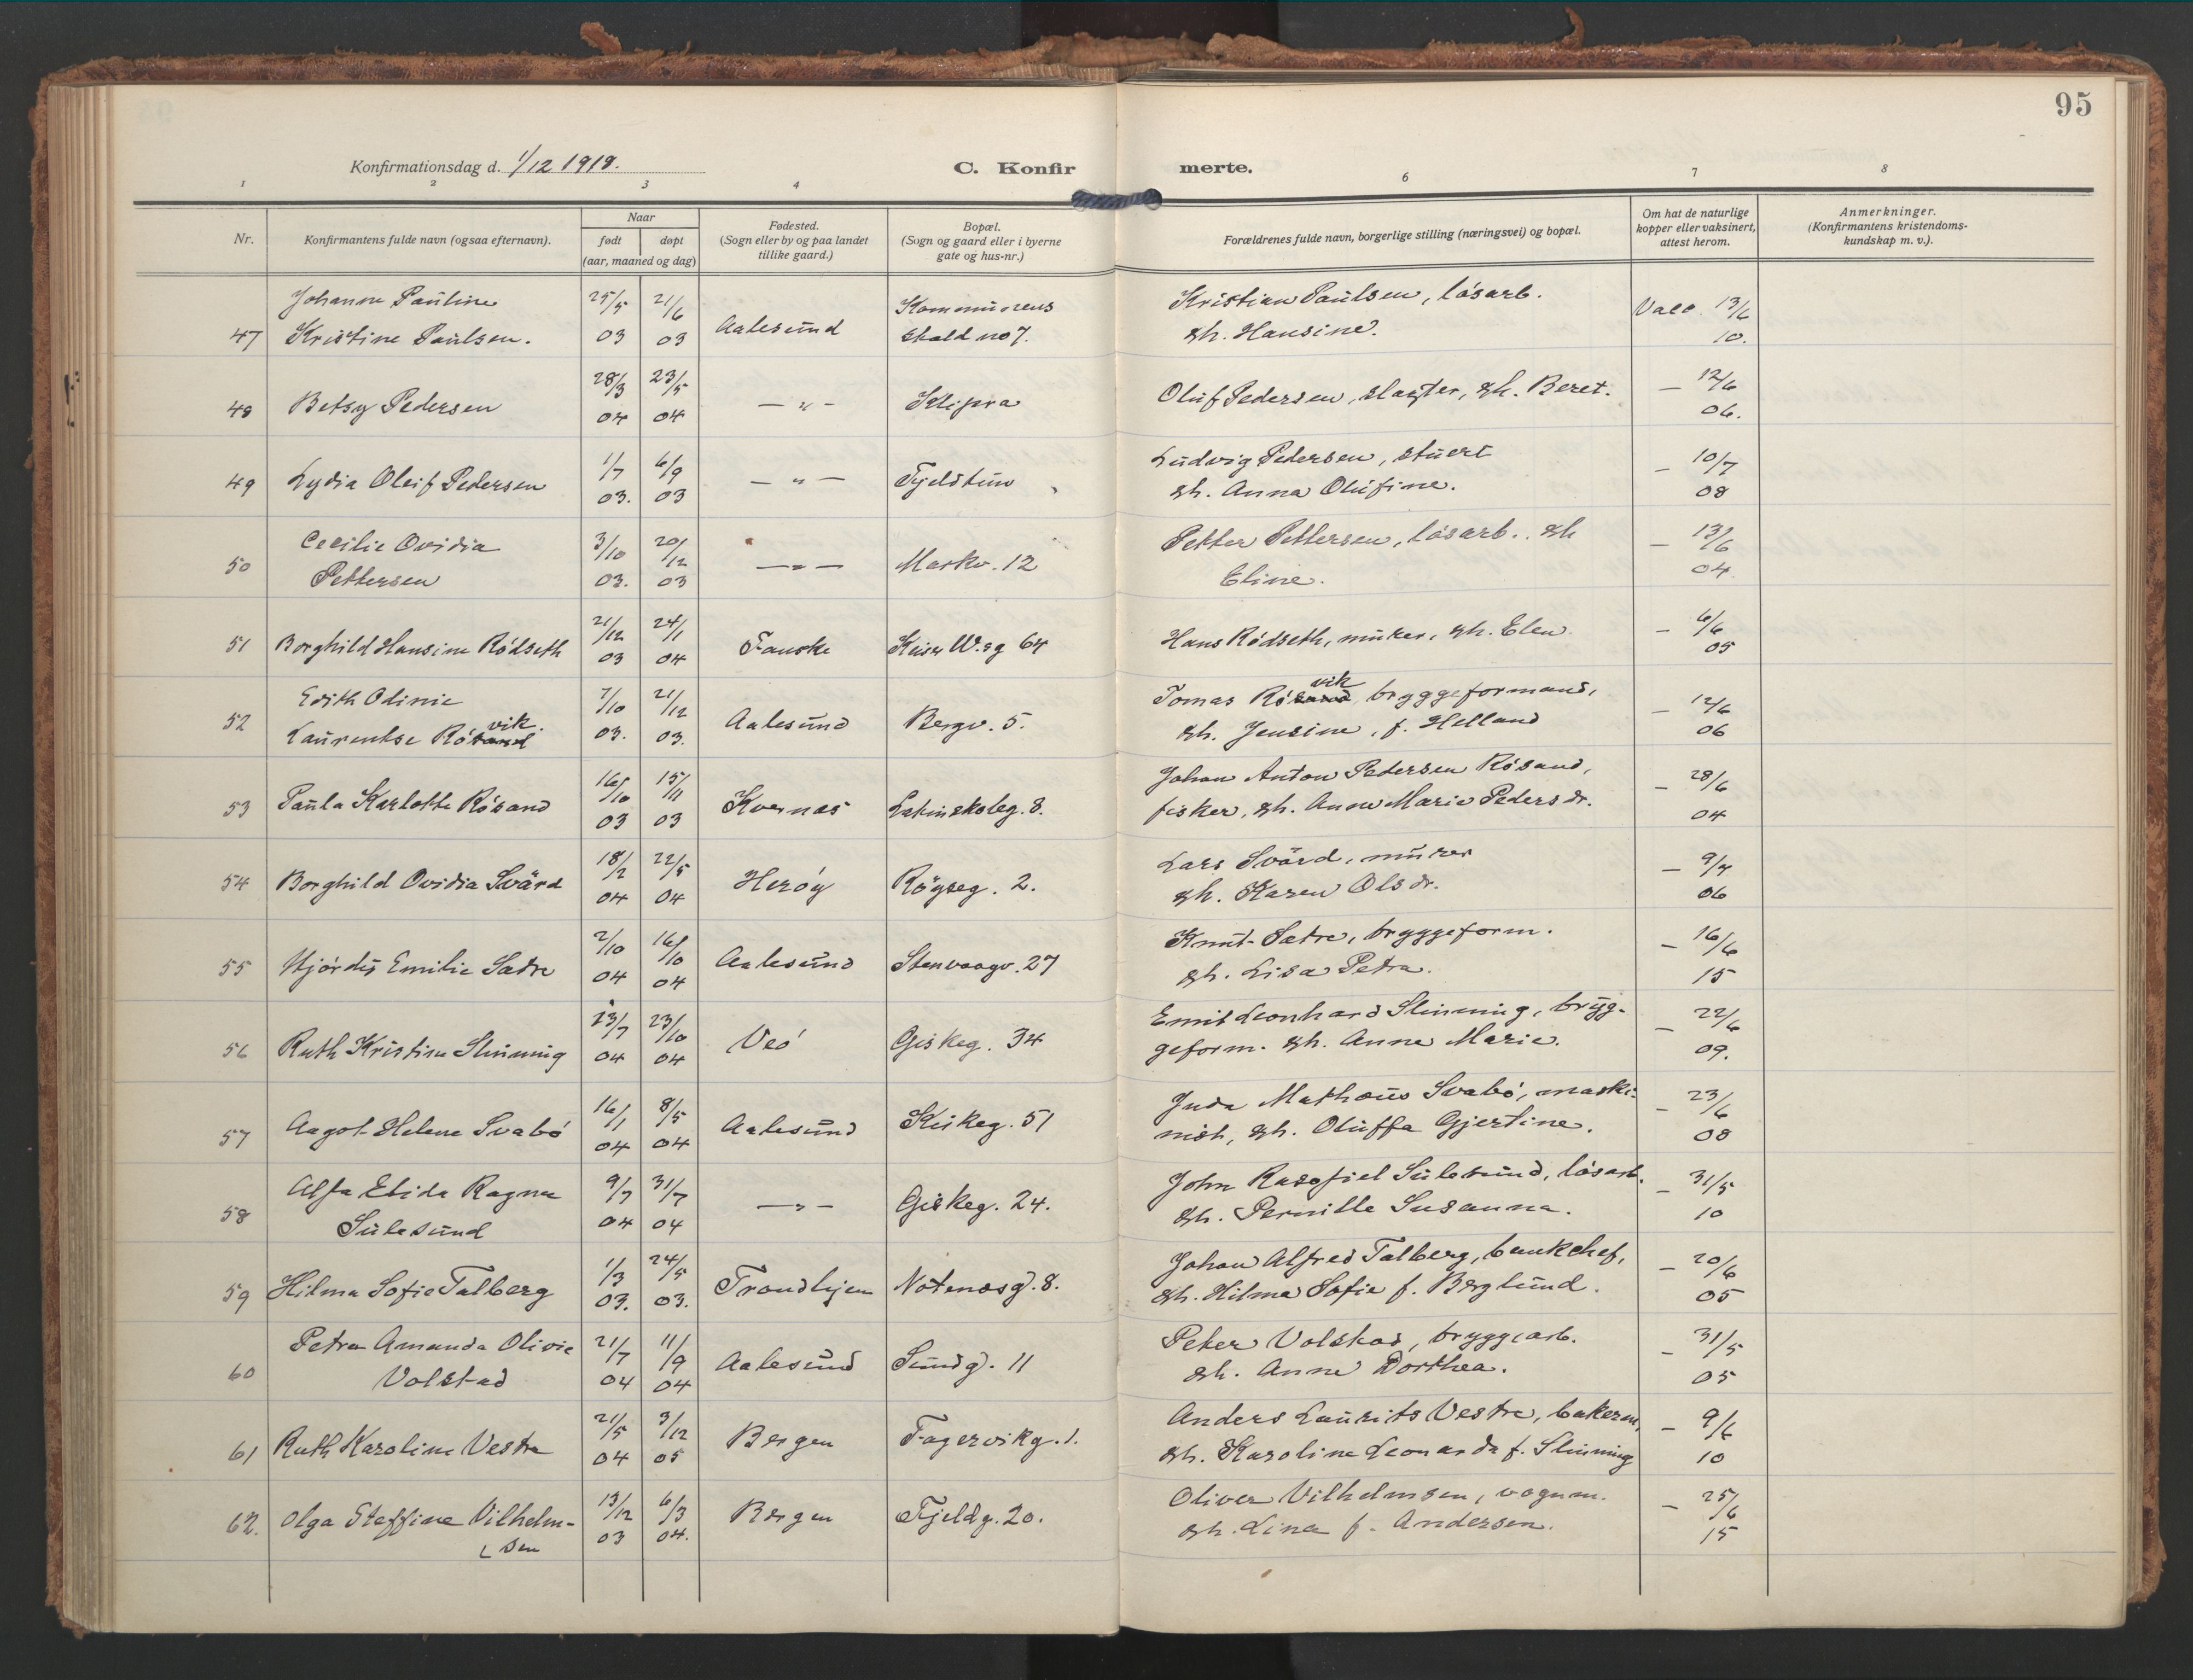 95
Konfirmationsdag d. 1/12 1918.
C. Konfirmerte.
1 2 3 4 6 7 8
Nr.
Konfirmantens fulde navn (ogsaa efternavn).
Naar
født døpt
(aar, maaned og dag)
Fødested.
(Sogn eller by og paa landet
tillike gaard.)
Bopæl.
(Sogn og gaard eller i byerne
gate og hus-nr.)
Forældrenes fulde navn, borgerlige stilling (næringsvei) og bopæl.
Om hat de naturlige
kopper eller vaksinert,
attest herom.
Anmerkninger.
(Konfirmantens kristendoms-
kundskap m. v.).
Johanne Pauline 25/5 21/6 Kommunens Kristian Paulsen, løsarb. Vacc. 13/6
47 Kristine Paulsen. 03 03 Aalesund skold no 7. & h. Hansine. 10.
28/3 23/5 12/6
48 Betsy Pedersen 04 04 — " — Klipra Oluf Pedersen, slagter, & h. Beret. — 06.
1/7 6/9 Ludvig Pedersen, stuert — 10/7
49 Lydia Oleif Pedersen 03. 03 — " — Fjeldtun & h. Anna Olufine. 08
Cecilie Ovidia 3/10 20/12 Petter Pettersen, løsarb. & h — 13/6
50 Pettersen 03. 03 — " — Markv. 12 Eline. 04
21/12 24/1 6/6
51 Borghild Hansine Rödseth 03 04 Fauske Keiser W.sg 64 Hans Rödseth, murer, & h. Elen — 05
Edith Olinie 7/10 21/12 Tomas Røsand vik bryggeformand, — 12/6
52 Laurentse Røsand vik 03. 03. Aalesund Bergv. 5. & h. Jensine, f. Helland 06
16/10 15/11 Johan Anton Petersen Røsand, — 28/6
53 Paula Karlotte Røsand 03 03 Kvernes Latinskoleg. 8. fisker, & h. Anne Marie Pedersdr. 04
18/2 22/5 Lars Svärd, murer — 9/7
54 Borghild Ovidia Svärd 04 04 Herøy Røyseg. 2. & h. Karen Olsdr. 06
2/10 16/10 Knut Sætre, bryggeform. — 16/6
55 Hjørdis Emilie Sætre 04 04 Aalesund Stenvaagv. 27 & h. Lisa Petra. 15
23/7 23/10 Emil Leonhard Slinning, bryg- — 22/6
56 Ruth Kristine Slinning 04 04 Veö Giskeg. 34 geform. & h. Anne Marie. 09.
16/1 8/5 Juda Mathæus Svabø, maski- — 23/6
57 Aagot Helene Svabø 04 04 Aalesund Keikeg. 51 nist, & h. Oluffa Gjertine. 08
Alfa Elida Ragna 9/7 31/7 John Sulesund, løsarb. — 31/5
58 Sulesund 04 04 — " — Giskeg. 24. & h. Pernille Susanna. 10
1/3 24/5 Johan Alfred Talberg, bankchef, — 20/6
59 Hilma Sofie Talberg 03. 03. Trondhjem Notenesg. 8. & h. Hilma Sofie f. Berglund. 05
Petra Amanda Olivie 21/7 11/9 Peter Volstad, bryggearb. — 31/5
60 Volstad 04 04 Aalesund Sundg. 11 & h. Anne Dorthea. 05
21/5 3/12 Anders Laurits Vestre, bakerm, — 9/6
61 Ruth Karoline Vestre 04 05 Bergen Fagervikg. 1. & h. Karoline Leonarda f. Slinning 10
13/12 6/3 Oliver Vilhelmsen, vognm. — 25/6
62. Olga Steffine Vilhelm- 03 04. Bergen Fjeldg. 20. & h. Lina f. Andersen. 15
sen